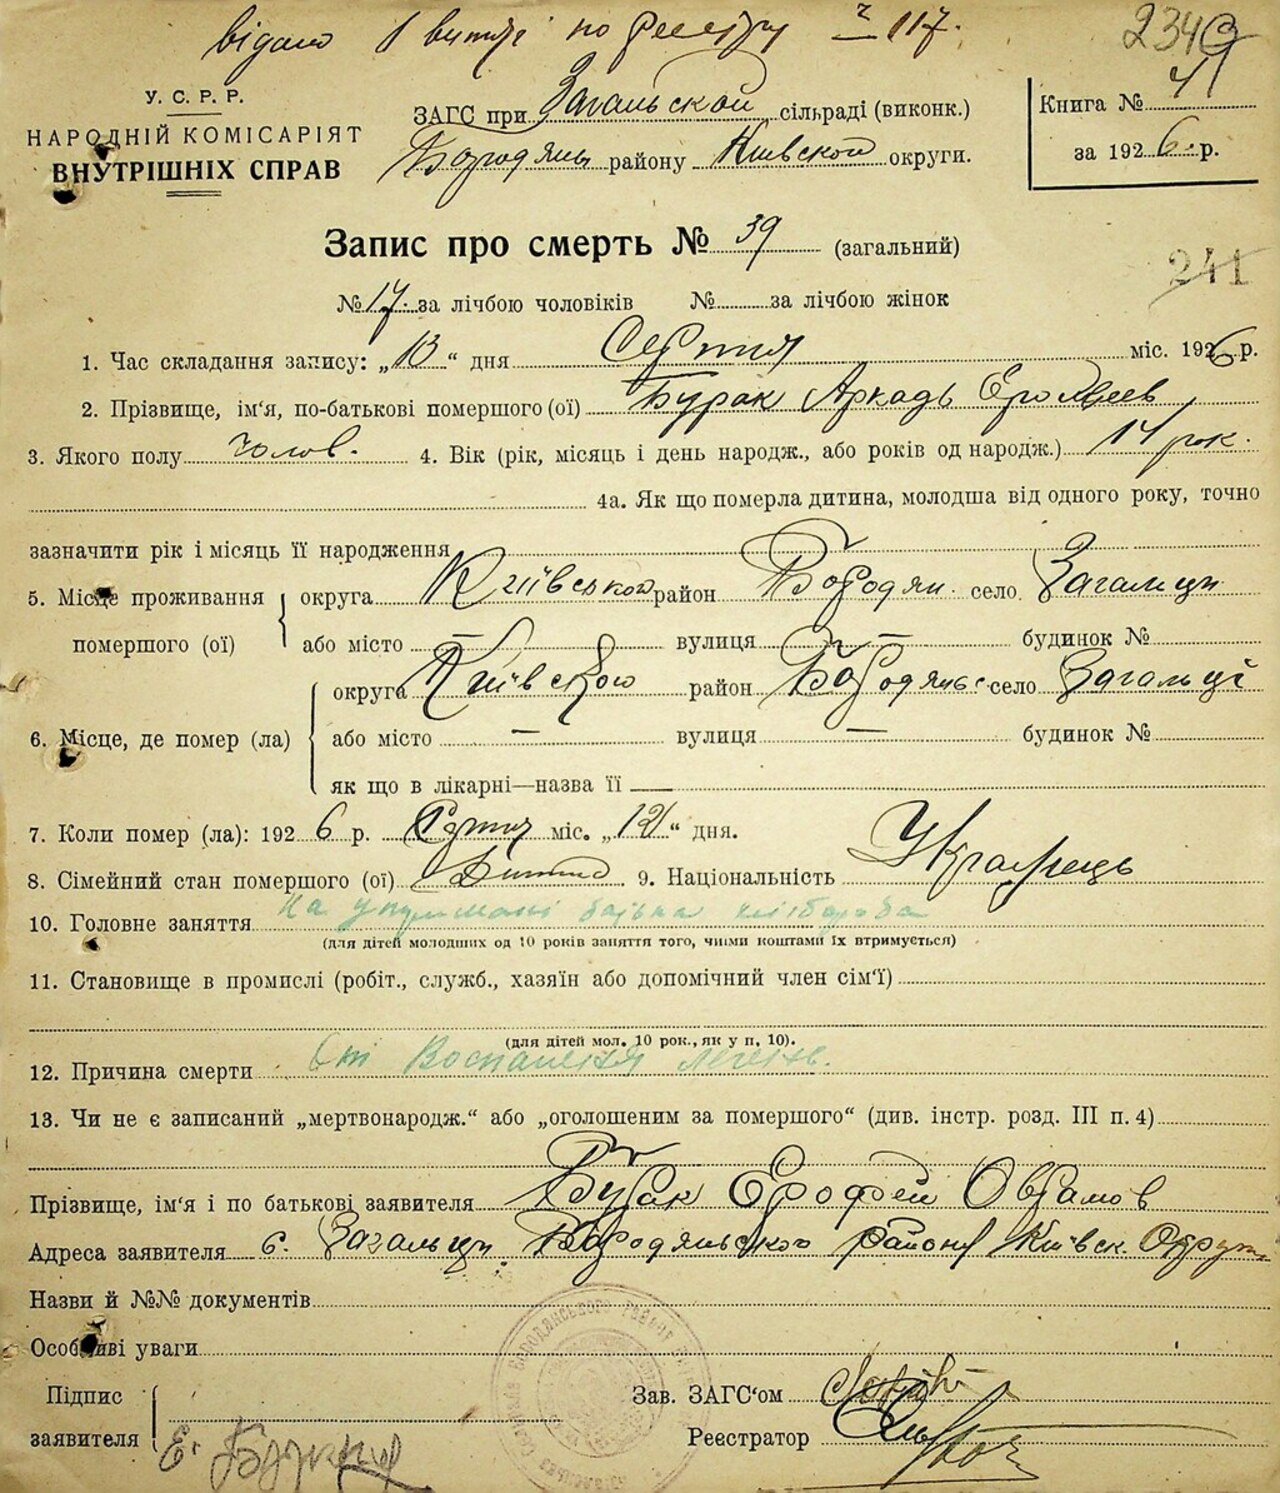 відано 1 витяг по реєстру № 117.
234
У. С. Р. Р.
НАРОДНІЙ КОМІСАРІЯТ
ВНУТРІШНІХ СПРАВ
ЗАГС при Загальской сільраді (виконк.)
Бородянь району Київской округи.
Книга №
за 1926 р.
Запис про смерть № 39 (загальний)
241
№ 17. за лічбою чоловіків № за лічбою жінок
1. Час складання запису: „13“ дня Серпня міс. 1926 р.
2. Прізвище, ім‘я, по-батькові помершого (ої) Бурак Аркадь Ерофеев
3. Якого полу чолов. 4. Вік (рік, місяць і день народж., або років од народж.) 14 рок.
4а. Як що померла дитина, молодша від одного року, точно
зазначити рік і місяць її народження
5. Місце проживання помершого (ої) округа Київської район Бородян. село Загальци
або місто — вулиця — будинок №
6. Місце, де помер (ла) округа Київского район Бородянс. село Загальці
або місто — вулиця — будинок №
як що в лікарні—назва її —
7. Коли помер (ла): 1926 р. Серпня міс. „12“ дня.
8. Сімейний стан помершого (ої) Дитина 9. Національність Украінець
10. Головне заняття На утримані батька хлібороба
(для дітей молодших од 10 років заняття того, чиїми коштами їх втримується)
11. Становище в промислі (робіт., служб., хазяїн або допомічний член сім‘ї)
(для дітей мол. 10 рок., як у п. 10).
12. Причина смерти От Воспаления легень.
13. Чи не є записаний „мертвонародж.“ або „оголошеним за помершого“ (див. інстр. розд. III п. 4)
Прізвище, ім‘я і по батькові заявителя Бурак Ерофей Оврамов
Адреса заявителя с. Загальци Бородянского району Київск. Округи
Назви й №№ документів
Особливі уваги
Підпис заявителя Е. Буряк
Зав. ЗАГС‘ом
Реєстратор